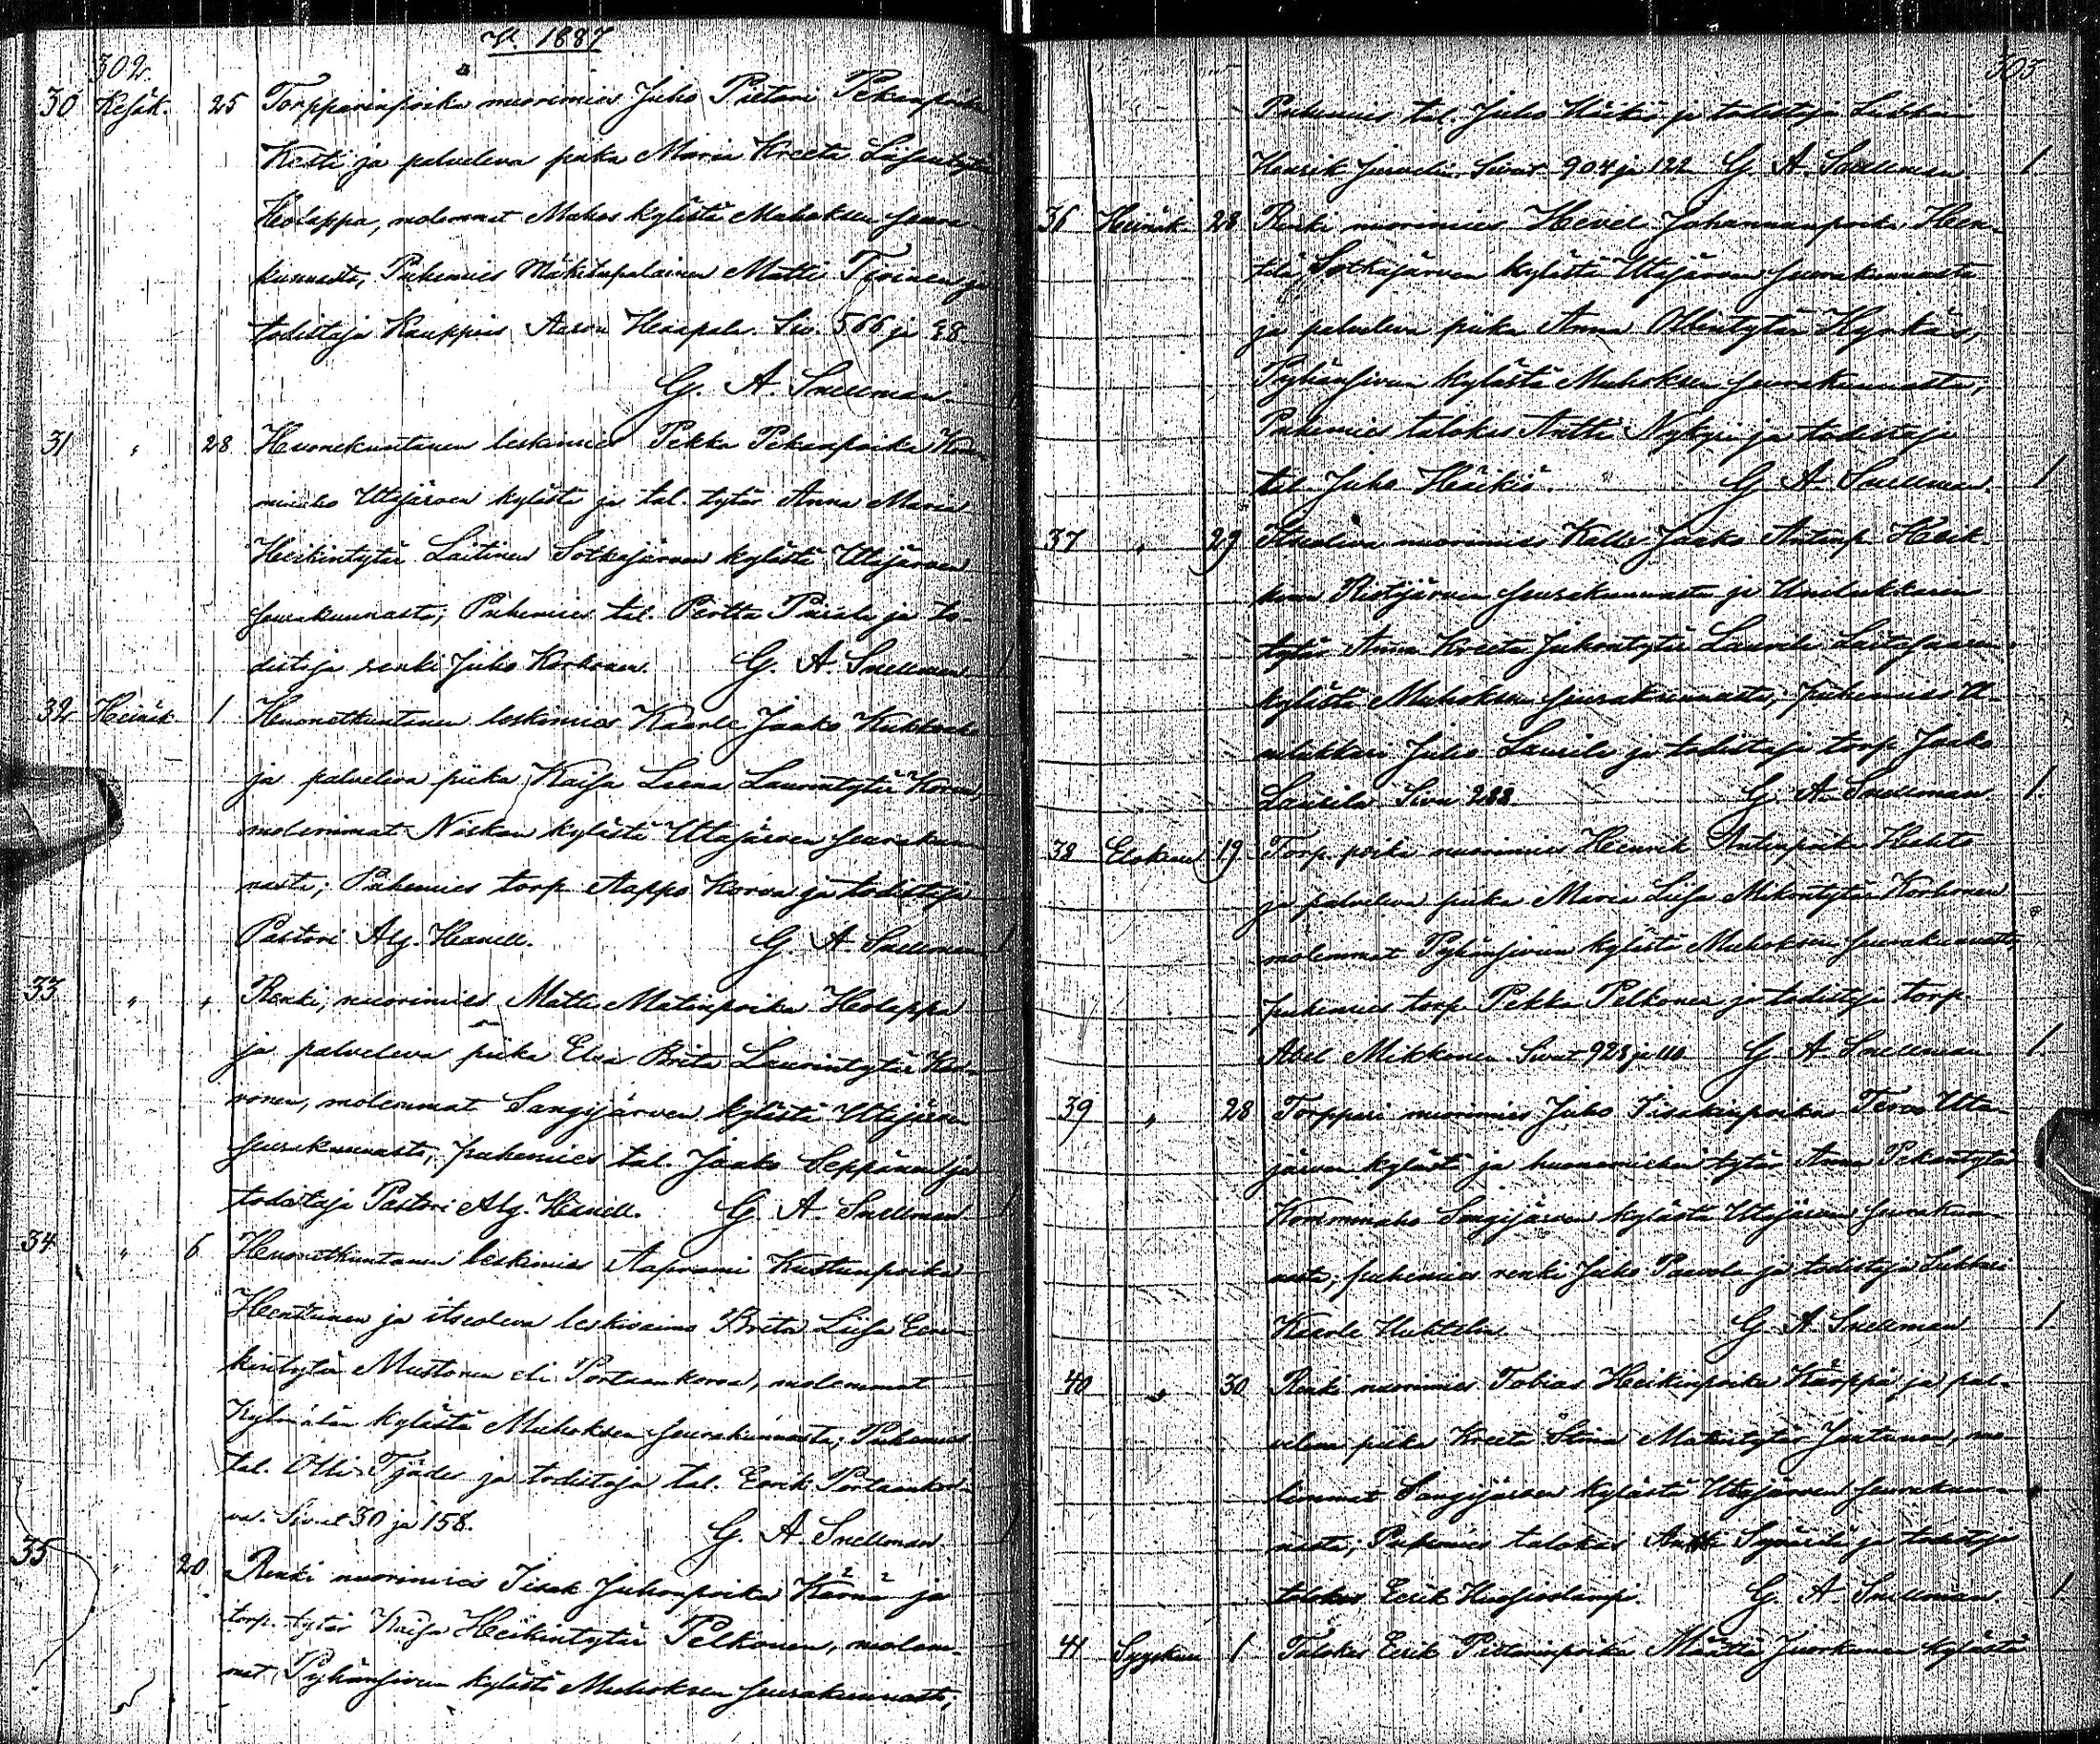 V. 1887
302.
30 Kesäk. 25 Torpparinpoika nuorimies Juho Pietari Pekanpoika
Kesti ja palveleva piika Maria Kreeta Liisantytär
Holappa, molemmat Muhos kylästä Muhoksen seura-
kunnasta, Puhemies Mäkitupalainen Matti Tervinen ja
todistaja Kauppias Aaron Haapala. Siv. 566 ja 28
G. A. Snellman
31 " 28 Huonekuntanen leskimies Pekka Pekanpoika Kom-
minaho Utajärven kylästä ja tal. tytär Anna Maria
Heikintytär Laitinen Sotkajärven kylästä Utajärven
seurakunnasta; Puhemies tal. Pertta Pirilä ja to-
distaja renki Juho Korhonen. G. A. Snellman 1
32 Heinäk. 1 Huonetkuntanen leskimies Kaarle Jaako Kukko
ja palveleva piika Kaisa Leena Laurintytär Korva,
molemmat Niskan kylästä Utajärven seurakun-
nasta; Puhemies torp. Aappo Korva ja todistaja
Pastori Alg. Hanell. G. A. Snellman 1
33 " " Renki, nuorimies Matti Matinpoika Holappa
ja palveleva piika Elsa Brita Laurintytär Kor-
vonen, molemmat Sangijärven kylästä Utajärven
seurakunnasta; puhemies tal. Jaako Seppänen ja
todistaja Pastori Alg. Hanell. G. A. Snellman 1
34 " 6 Huonetkuntanen leskimies Aaprami Kustunpoika
Hentunen ja itseoleva leskivaimo Brita Liisa Eeri-
kintytär Mustonen eli Portaankorva, molemmat
Kylmälän kylästä Muhoksen seurakunnasta; Puhemies
tal. Olli Tjäder ja todistaja tal. Eerik Portaankor-
va. Sivut 30 ja 158. G. A. Snellman 1
35 " 20 Renki nuorimies Iisak Juhonpoika Kärnä ja
torp. tytär Kaisa Heikintytär Pelkonen, molem-
mat Pyhänsivun kylästä Muhoksen seurakunnasta;
303
Puhemies tal. Juho Häikiö ja todistaja Lukkari
Henrik Juvelin. Sivut 904 ja 122 G. A. Snellman 1.
36 Heinäk. 28 Renki nuorimies Hevel Johannanpoika Hen-
tilä Sotkajärven kylästä Utajärven seurakunnasta
ja palveleva piika Anna Ollintytär Hyrkäs,
Pyhänsivun kylästä Muhoksen seurakunnasta;
Puhemies talokas Antti Nykyri ja todistaja
tal. Juho Häikiö. G. A. Snellman. 1
37 " 29 Itseoleva nuorimies Kalle Jaako Antinp. Heik-
kinen Ristijärven seurakunnasta ja Unilukkarin
tytär Anna Kreeta Juhontytär Laurila Laitasaaren
kylästä Muhoksen seurakunnasta; puhemies U-
nilukkari Juho Laurila ja todistaja torp. Jaako
Laurila Sivu 288. G. A. Snellman 1.
38 Elokuu 19 Torp. poika nuorimies Heinrik Antinpoika Hahto
ja palveleva piika Maria Liisa Mikontytär Korhonen
molemmat Pyhänsivun kylästä Muhoksen seurakunnasta,
puhemies torp. Pekka Pelkonen ja todistaja torp.
Abel Mikkonen Sivut 928 ja 110. G. A. Snellman 1.
39 " 28 Torppari nuorimies Juho Iisakinpoika Tervo Uta-
järven kylästä ja huonemiehen tytär Anna Pekantytär
Komminaho Sangijärven kylästä Utajärven seurakun-
nasta; puhemies renki Juho Paavola ja todistaja Lukkari
Kaarle Huhtelin G. A. Snellman 1.
40 " 30 Renki nuorimies Tobias Heikinpoika Kärppä ja pal-
veleva piika Kreeta Stiina Matintytär Juntunen, mo-
lemmat Sangijärven kylästä Utajärven seurakun-
nasta; Puhemies talokas Antti Sipärilä ja todistaja
talokas Eerik Huosioslampi. G. A. Snellman 1
41 Syyskuu 1 Talokas Eerik Pietarinpoika Määttä Juorkunan kylästä